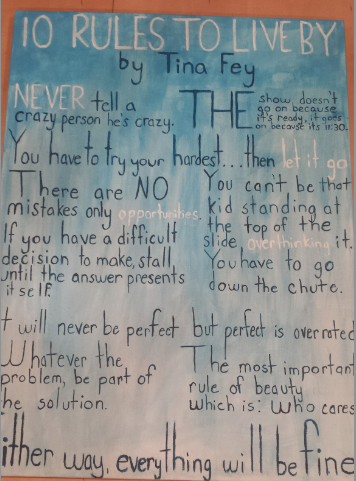 10 RULES TO LIVE BY
by Tina Fey
NEVER tell a
crazy person he's crazy.
THE show doesn't
go on because
it's ready, it goes
on because its 11:30.
You have to try your hardest...then let it go
There are NO
mistakes only opportunities.
You can't be that
kid standing at
the top of the
slide, overthinking it.
You have to go
down the chute.
If you have a difficult
decision to make, stall
until the answer presents
itself.
t will never be perfect but perfect is overrated
Whatever the
problem, be part of
he solution.
The most important
rule of beauty
which is: who cares
ither way, everything will be fine